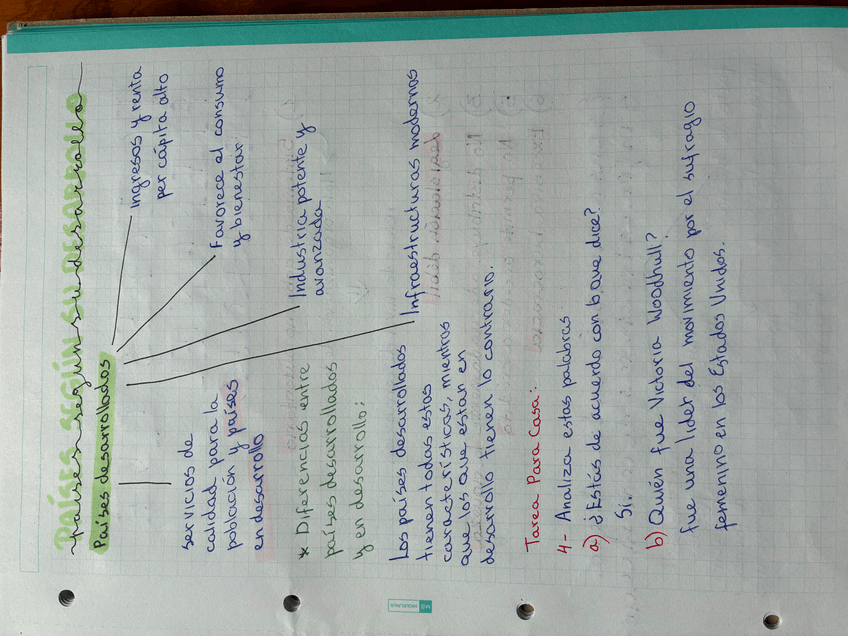 PAÍSES SEGÚN SU DESARROLLO
países según su desarrollo
Países desarrollados
ingresos y renta
per cápita alto
Favorece el consumo
y bienestar.
Industria potente y
avanzada
Infraestructuras modernas
servicios de
calidad para la
población y países
en desarrollo
* Diferencias entre
países desarrollados
y en desarrollo:
Los países desarrollados
tienen todas estas
características, mientras
que los que estan en
desarrollo tienen lo contrario.
Tarea Para Casa:
4- Analiza estas palabras
a) ¿Estás de acuerdo con b que dice?
Si.
b) Quién fue Victoria Woodhull?
fue una lider del movimiento por el sufragio
femenino en los Estados Unidos.
MIQUELRIUS